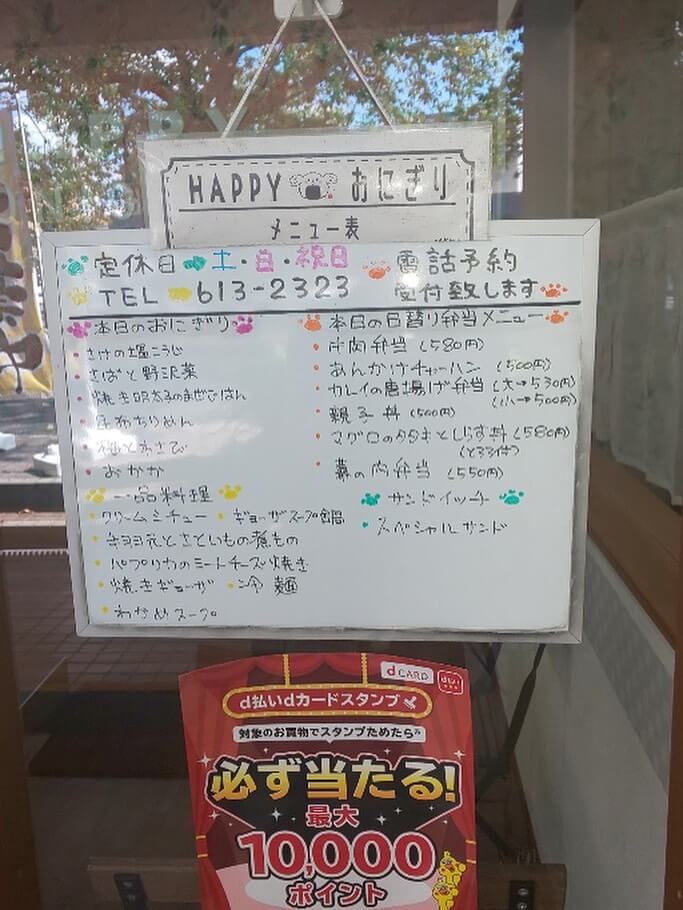 HAPPY おにぎり
メニュー表
定休日 土・日・祝日
電話予約
TEL 613-2323
受付致します
本日のおにぎり
さけの塩こうじ
さばと野沢菜
焼き明太子のまぜごはん
昆布ちりめん
梅とわさび
おかか
本日の日替り弁当メニュー
牛肉弁当 (580円)
あんかけチャーハン (500円)
カレイの唐揚げ弁当 (大→530円)
(小→500円)
親子丼 (500円)
マグロのタタキとしらす丼 (580円)
(とろろ付)
幕の内弁当 (550円)
一品料理
クリームシチュー ・ギョーザスープ鍋
とさといもの煮もの
パプリカのミートチーズ焼き
焼きギョーザ ・冷麺
わかめスープ
サンドイッチ
スペシャルサンド
d CARD
d払い
d払いdカードスタンプ
対象のお買物でスタンプためたら
必ず当たる!
最大
10,000
ポイント